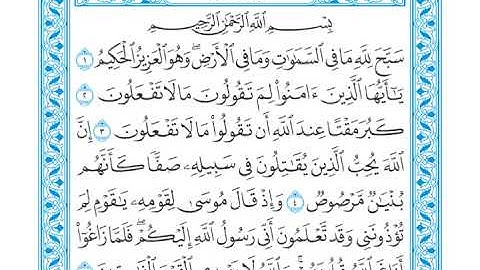 بِسْمِ ٱللَّهِ ٱلرَّحْمَٰنِ ٱلرَّحِيمِ
سَبَّحَ لِلَّهِ مَا فِى ٱلسَّمَٰوَٰتِ وَمَا فِى ٱلْأَرْضِ ۖ وَهُوَ ٱلْعَزِيزُ ٱلْحَكِيمُ ١
يَٰٓأَيُّهَا ٱلَّذِينَ ءَامَنُوا۟ لِمَ تَقُولُونَ مَا لَا تَفْعَلُونَ ٢
كَبُرَ مَقْتًا عِندَ ٱللَّهِ أَن تَقُولُوا۟ مَا لَا تَفْعَلُونَ ٣ إِنَّ
ٱللَّهَ يُحِبُّ ٱلَّذِينَ يُقَٰتِلُونَ فِى سَبِيلِهِۦ صَفًّا كَأَنَّهُم
بُنْيَٰنٌ مَّرْصُوصٌ ٤ وَإِذْ قَالَ مُوسَىٰ لِقَوْمِهِۦ يَٰقَوْمِ لِمَ
تُؤْذُونَنِى وَقَد تَّعْلَمُونَ أَنِّى رَسُولُ ٱللَّهِ إِلَيْكُمْ ۖ فَلَمَّا زَاغُوٓا۟